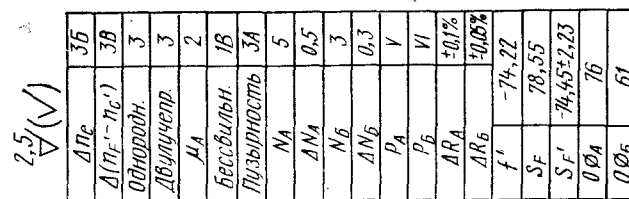 2,5 (√)
Δne 3Б
Δ(nF'-nC') 3В
Однородн. 3
Двулучепр. 3
μA 2
Бессвильн. 1В
Пузырность 3А
NA 5
ΔNA 0,5
NБ 3
ΔNБ 0,3
PA V
PБ VI
ΔRA ±0,1%
ΔRБ ±0,05%
f' -74,22
SF 78,55
SF' -74,45±2,23
0ØA 76
0ØБ 61